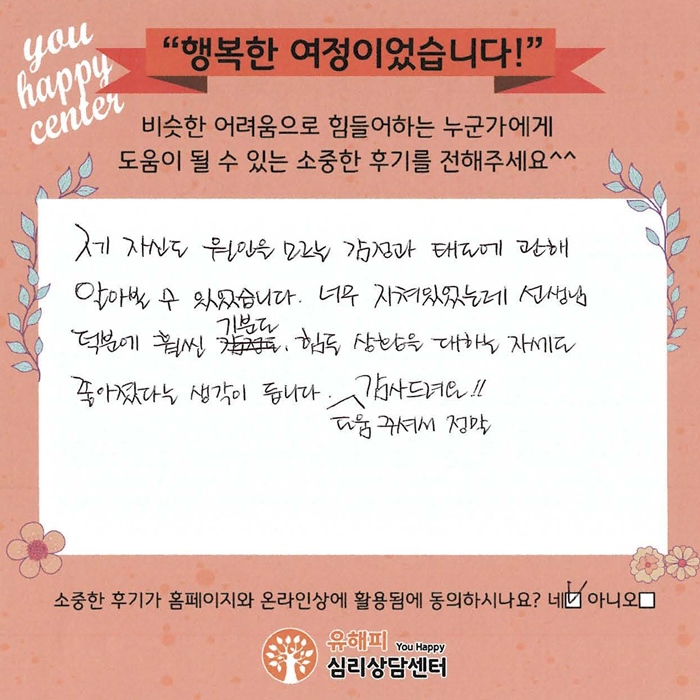 you
happy
center
“행복한 여정이었습니다!”
비슷한 어려움으로 힘들어하는 누군가에게
도움이 될 수 있는 소중한 후기를 전해주세요^^
제 자신도 원인을 모르는 감정과 태도에 관해
알아볼 수 있었습니다. 너무 지쳐있었는데 선생님
기분도
덕분에 훨씬 감정도. 힘든 상황을 대하는 자세도
좋아졌다는 생각이 듭니다. 감사드려요!!
도움 주셔서 정말
소중한 후기가 홈페이지와 온라인상에 활용됨에 동의하시나요? 네☑ 아니오☐
유해피 You Happy
심리상담센터